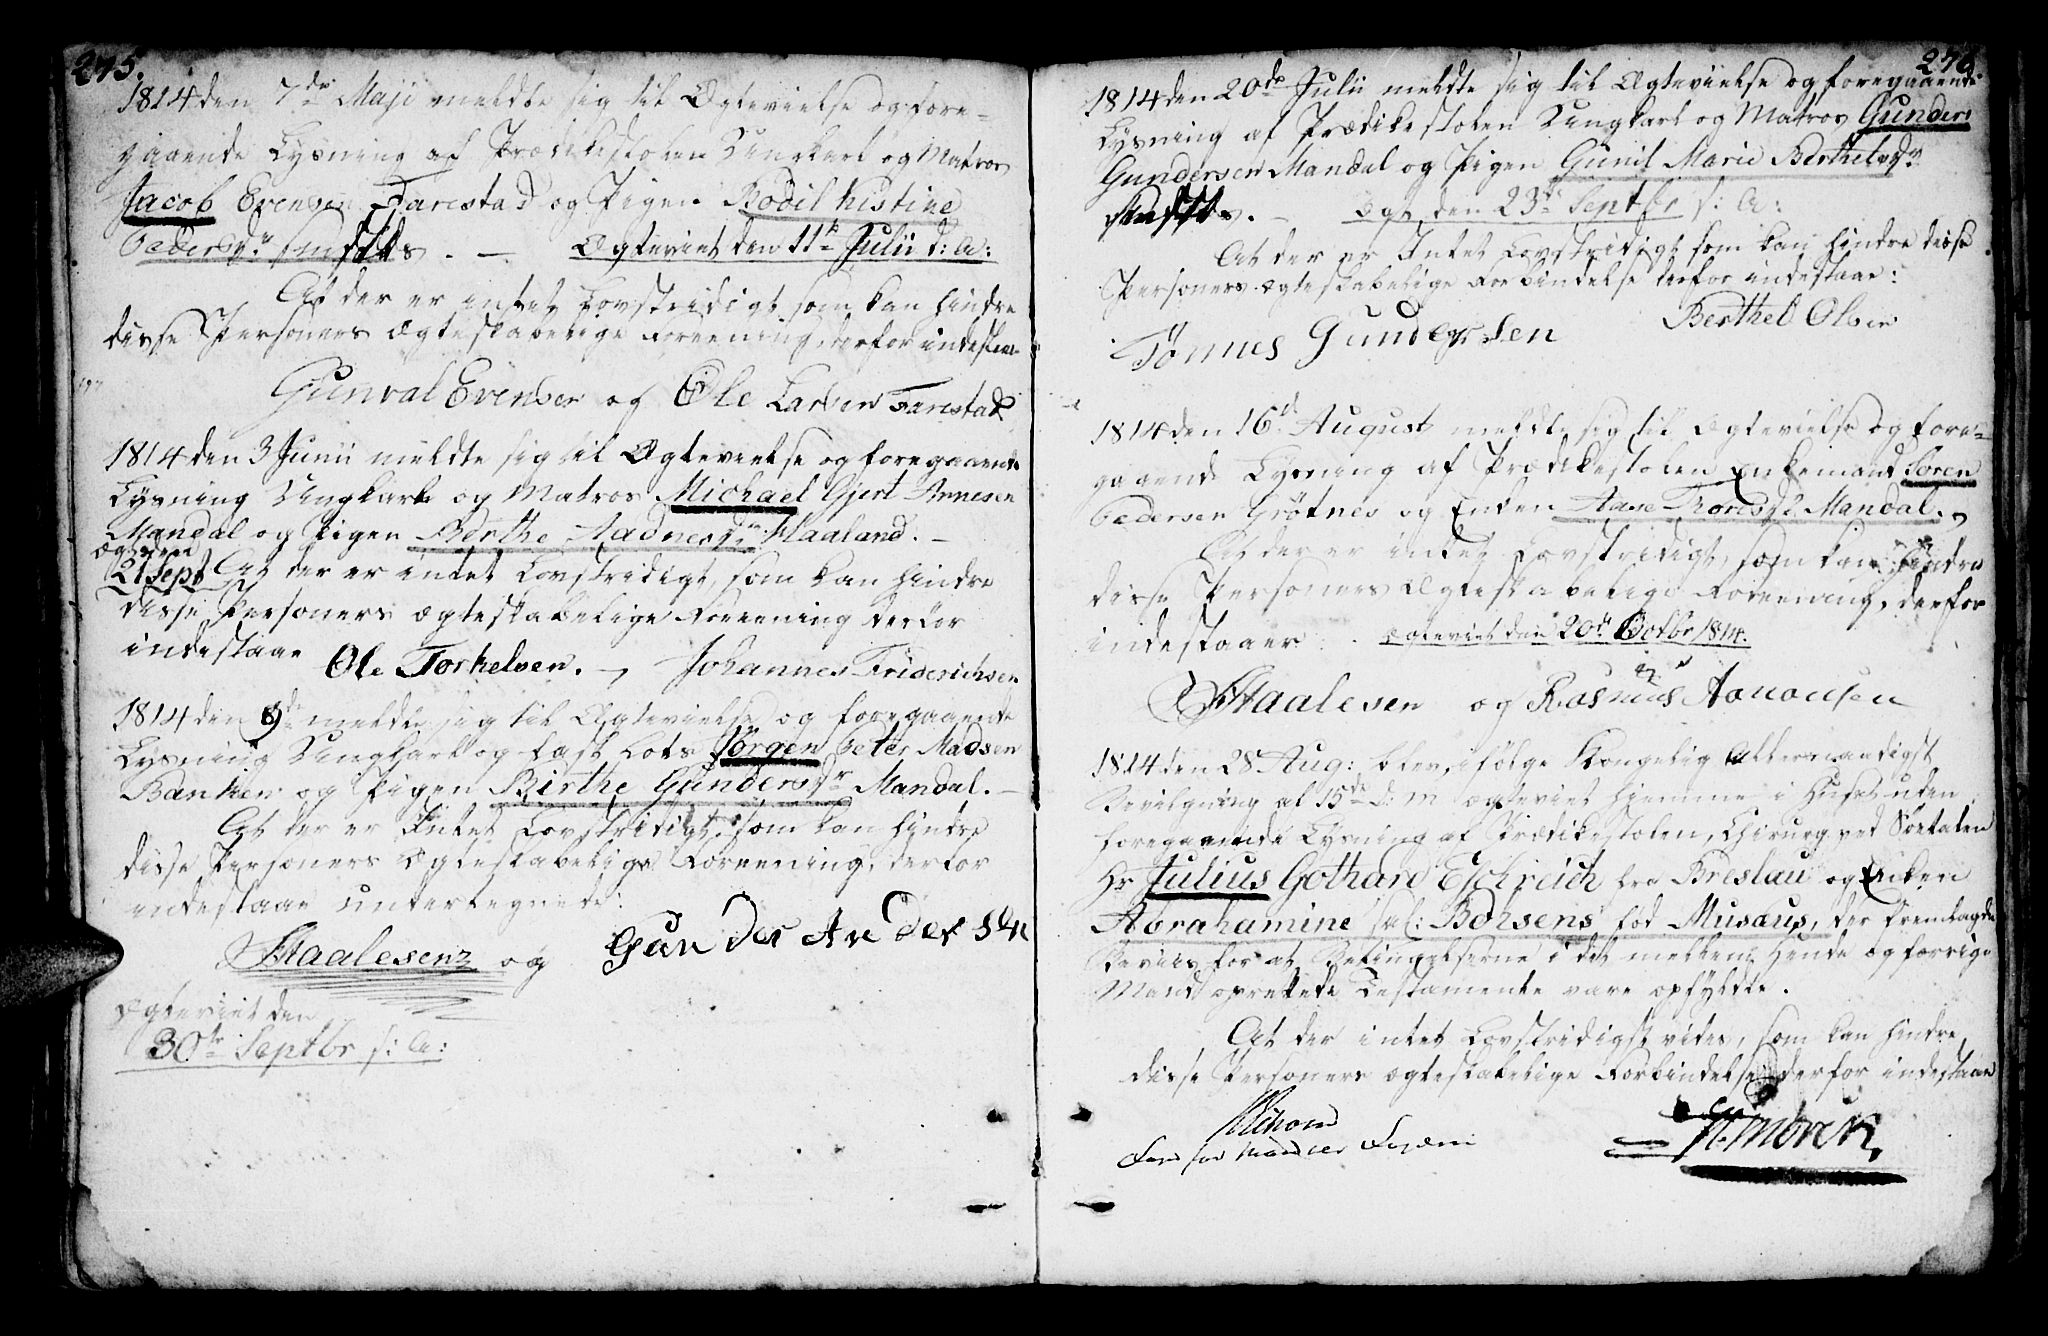 275.
1814 den 7de Maji meldte sig til Ægtevielse og fore-
gaaende Lysning af Prædikestolen Ungkarl og Matros
Jacob Evensen Farestad og Pigen Bodil Kistine
Pedersdr . — Ægteviet den 11te Julii d: A:
At der er intet Lovstridigt som kan hindre
disse Personers Ægteskabelige Foreening, derfor indestaae
Gunval Evensen og Ole Larsen Farestad
1814 den 3 Junii meldte sig til Ægtevielse og foregaaende
Lysning Ungkarl og Matros Michael Gjert Annesen
Mandal og Pigen Berthe Aadnesdr Haaland. —
Ægt. den
21 Sept At der er intet Lovstridigt, som kan hindre
disse Personers ægteskabelige Foreening derfor
indestaae Ole Torkelsen. —, Johannes Friderichsen
1814 den 9de meldte sig til Ægtevielse og foregaaende
Lysning Ungkarl og fast Lots Jørgen Peter Madsen
Banken og Pigen Birthe Gundersdr Mandal. —
At der er Intet Lovstridigt, som kan hindre
disse Personers Ægteskabelige Foreening, derfor
indestaae undertegnede:
Staalesen og Gunder Andersen
Ægteviet den
30te Septbr s: A:
276
1814 den 20de Julii meldte sig til Ægtevielse og foregaaende
Lysning af Prædikestolen Ungkarl og Matros Gunder
Gundersen Mandal og Pigen Gunil Marie Berthelsdr
. — Ægt. den 23de Septbr s: A:
At der er Intet Lovstridigt som kan hindre disse
Personers ægteskabelige Forbindelse derfor indestaae:
Berthel Olsen
Tönnes Gundersen
1814 den 16d August meldte sig til Ægtevielse og fore-
gaaende Lysning af Prædikestolen Enkemand Søren
Pedersen Grötnes og Enken Aase Toresdr Mandal.
At der er intet Lovstridigt, som kan hindre
disse Personers Ægteskabelige Foreening, derfor
indestaaer. Ægteviet den 20de Octbr 1814.
Staalesen og Rasmus Aanonsen
1814 den 28 Aug: blev, ifølge Kongelig Allernaadigst
Bevilgning af 15de d: M ægteviet hjemme i Huset uden
foregaaende Lysning af Prædikestolen, Chirurg ved Søetaten
Hr Julius Gothard Eschreich fra Breslau og Enken
Abrahamine sal: Boysens fød Musæus, der fremlagde
Beviis for at Betingelserne i det mellem hende og forrige
Mand oprettede Testamente vare opfyldte.
At der intet Lovstridigt vides, som kan hindre
disse Personers ægteskabelige Forbindelse derfor indestaae